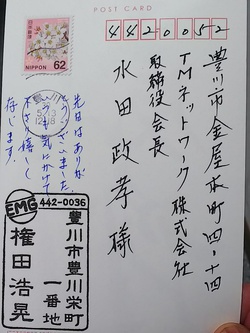 POST CARD
4420052
NIPPON 62
豊川市金屋本町四ー十四
TMネットワーク株式会社
取締役会長
水田政孝様
先日はありが
とうございました
いつも気にかけて
下さり嬉しく
存じます。
EMG 442-0036
豊川市豊川栄町
一番地
権田浩晃